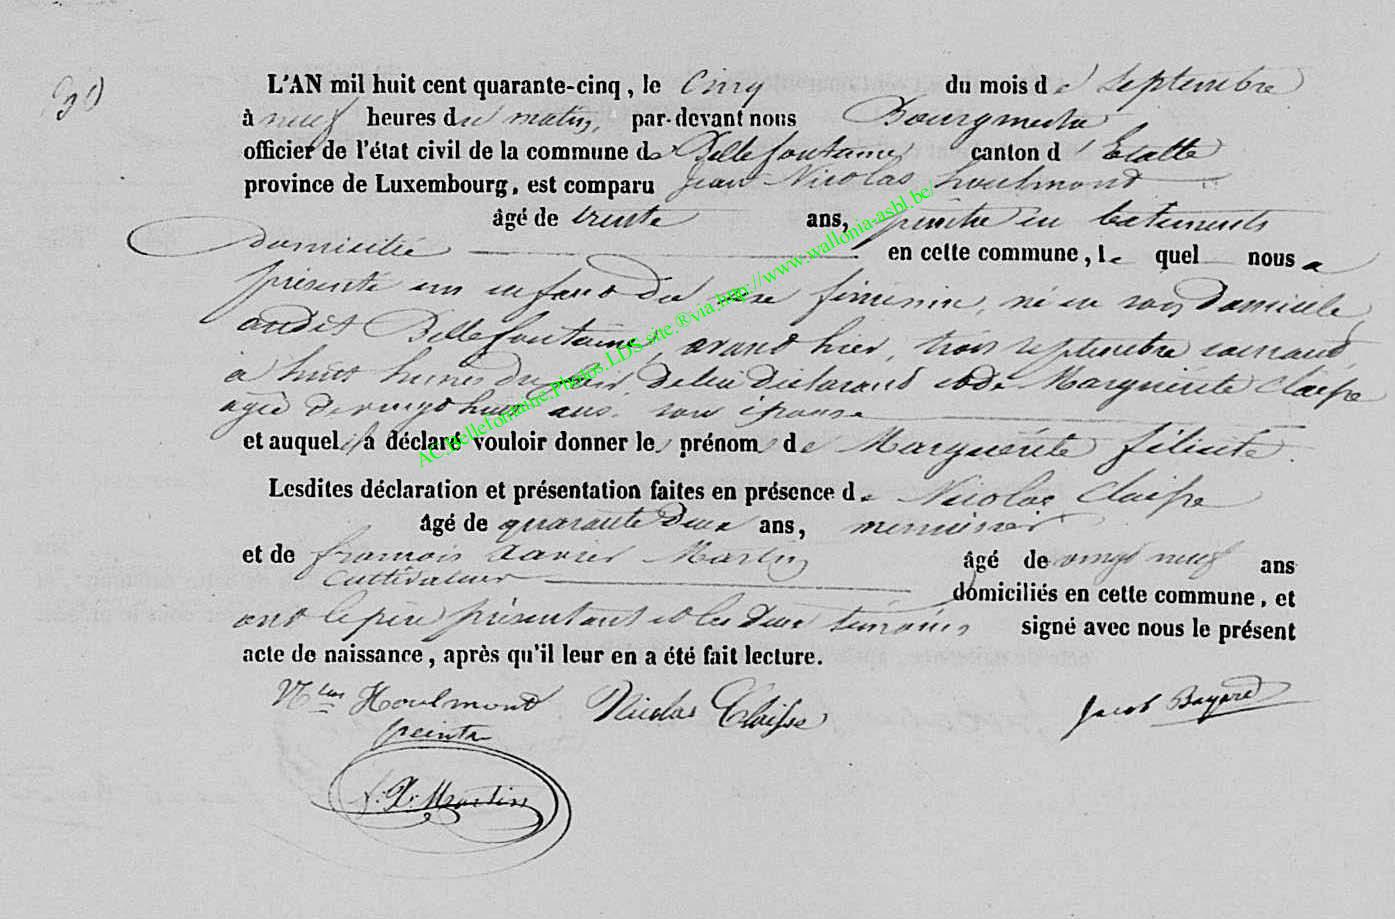 30
L'AN mil huit cent quarante-cinq, le Cinq du mois de Septembre
à neuf heures du matin, par-devant nous Bourgmestre
officier de l'état civil de la commune de Bellefontaine canton d'Etalle
province de Luxembourg, est comparu Jean Nicolas houlmont
âgé de trente ans, peintre en batiments
domicilié en cette commune, le quel nous a
présenté un enfant du sexe féminin, né en son Domicile
audit Bellefontaine, avant hier, trois septembre courant
à huit heures du soir De lui déclarant et de Marguerite Claisse
agée de vingt huit ans. son épouse
et auquel il a déclaré vouloir donner les prénoms de Marguerite féliceté.
Lesdites déclaration et présentation faites en présence de Nicolas Claisse
âgé de quarante Deux ans, menuisier
et de françois Xavier Martin âgé de vingt neuf ans
Cultivateur domiciliés en cette commune, et
ont le père présentant et les deux témoins signé avec nous le présent
acte de naissance, après qu'il leur en a été fait lecture.
Nlas Houlmont Nicolas Claisse Jacob Bayard
peintre
f: X: Martin
AC.Bellefontaine.Photos.LDS.site.®via.http://www.wallonia-asbl.be/